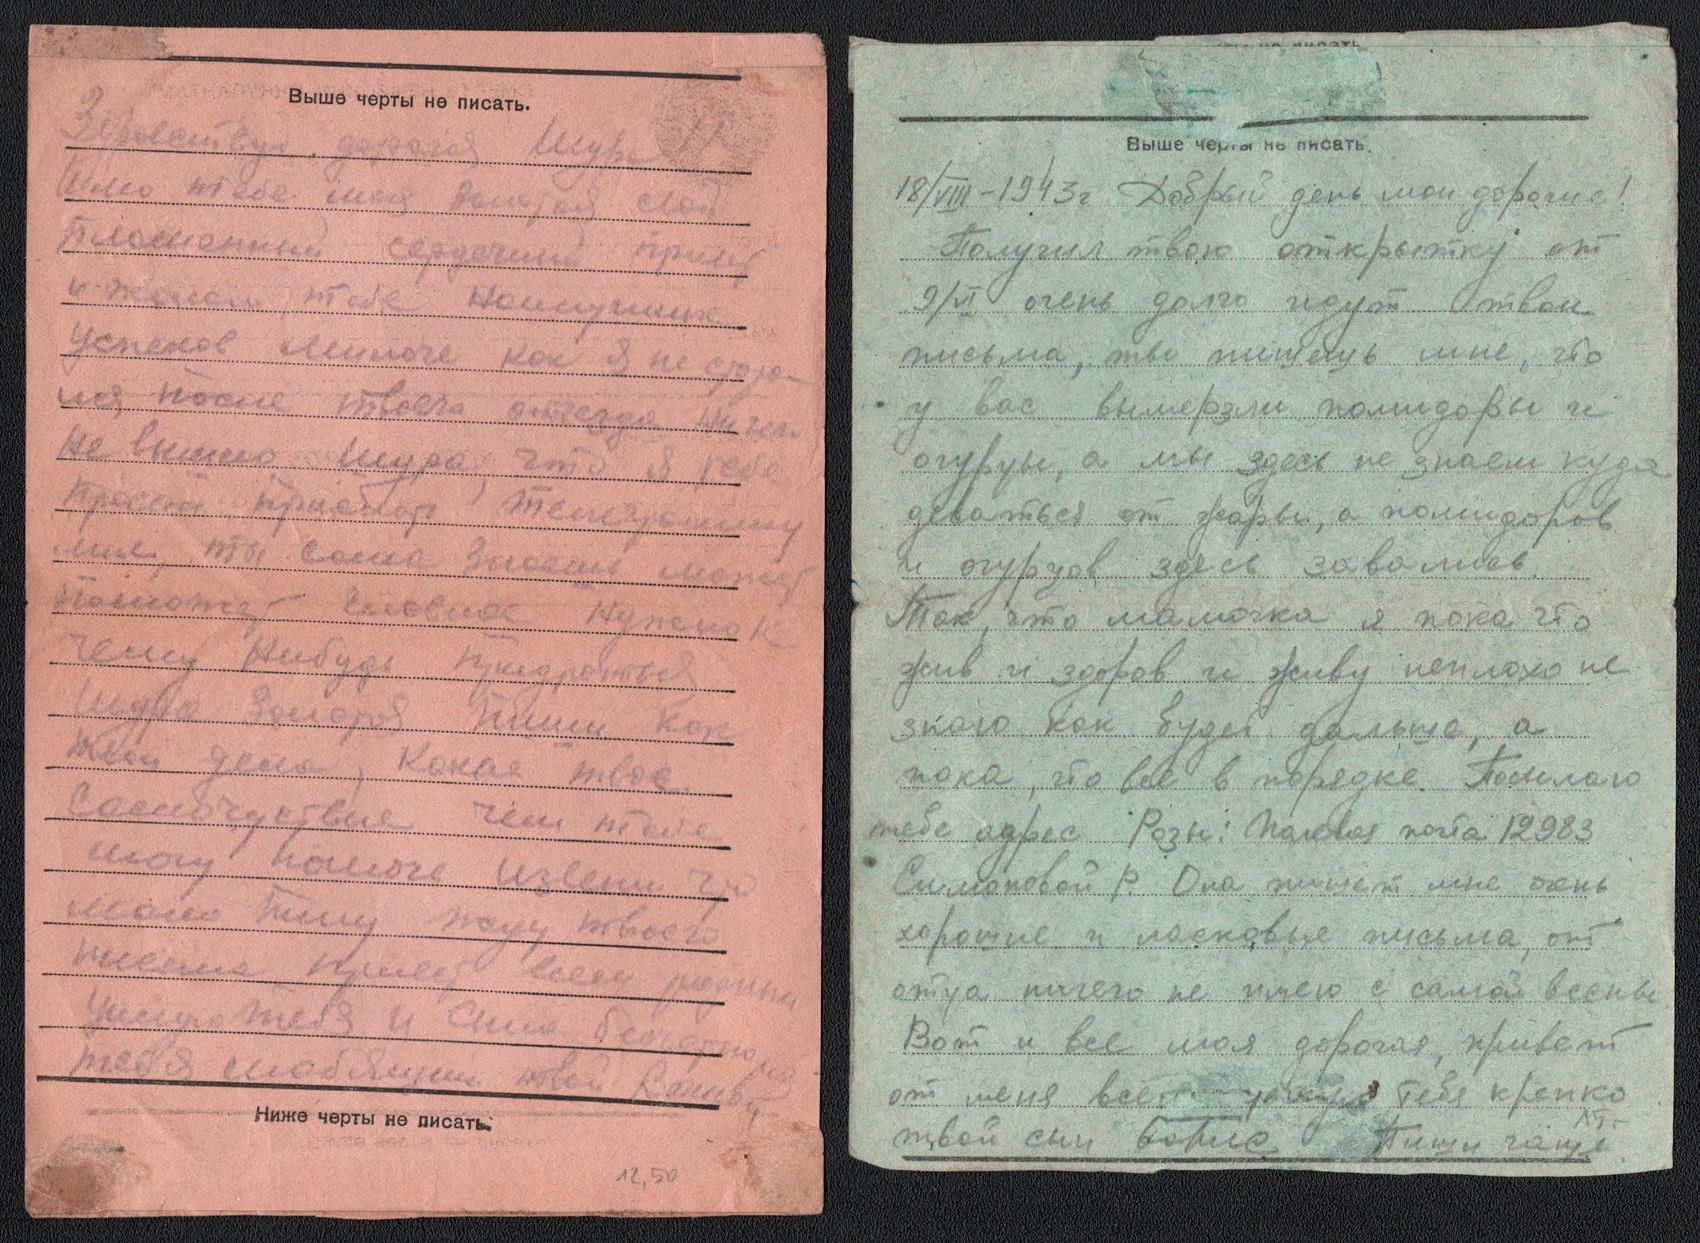 Выше черты не писать.
Здравствуй, дорогая Шура
Шлю тебе моя золотая свой
Пламенный сердечный привет
и желаю тебе наилучших
успехов Милоче как я не старо-
лся после твоего отъезда ничего
не вышло Шура, что я тебе
просил прислать телеграмму
мне, ты сама знаешь может
поможет главное нужно к
чему нибудь придраться
Шура Золотая пиши как
твои дела, какое твое
самочуствие чем тебе
могу помоч извени что
мало пишу жду твоего
письма привет всем родным
Целую тебя и сына бесчетно раз
тебя любящий твой
Ниже черты не писать.
12,50
Выше черты не писать.
18/VIII-1943г Добрый день мои дорогие!
Получил твою открытку от
9/VI очень долго идут твои
письма, ты пишешь мне, что
у вас вымерзли помидоры и
огурцы, а мы здесь не знаем куда
деваться от жары, а помидоров
и огурцов здесь завались.
Так, что мамочка я пока что
жив и здоров и живу неплохо не
знаю как будет дальше, а
пока, что все в порядке. Посылаю
тебе адрес Розы: Полевая почта 12983
Симоновой Р. Она пишет мне очень
хорошие и ласковые письма, от
отца ничего не имею с самой весны
Вот и все моя дорогая, привет
от меня всем целую тебя крепко
твой сын Борис Пиши чаще